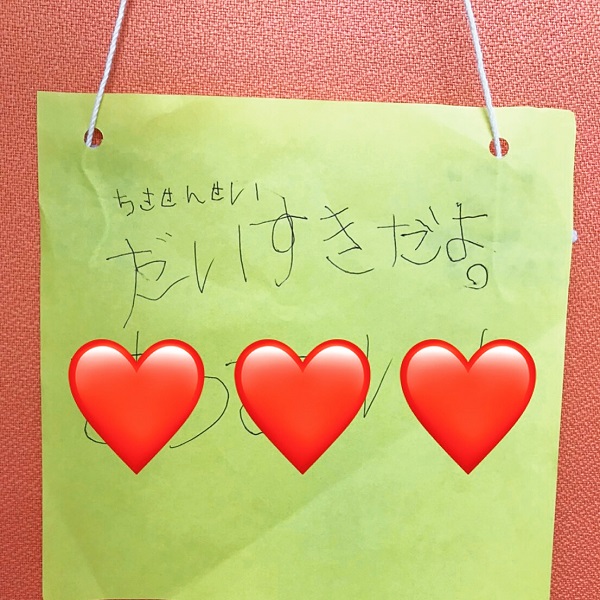 ちさせんせい
だいすきだよ。